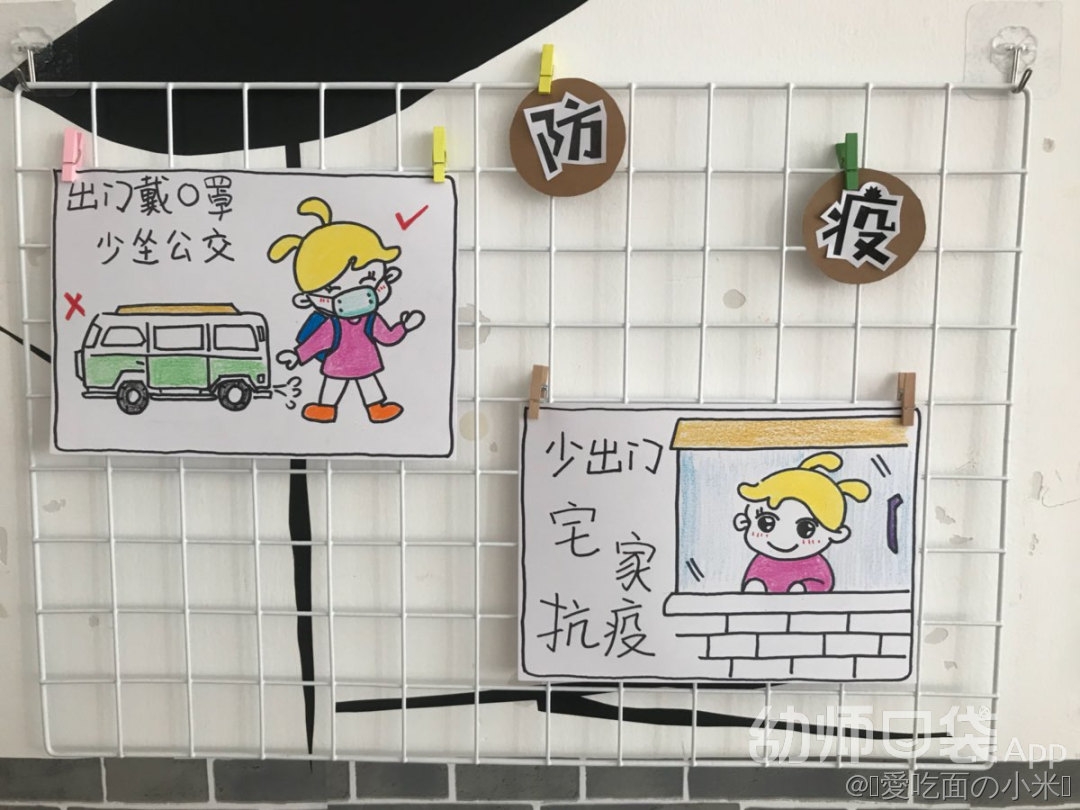 防
疫
出门戴口罩
少坐公交
少出门
宅
家
抗疫
幼师口袋App
@愛吃面の小米